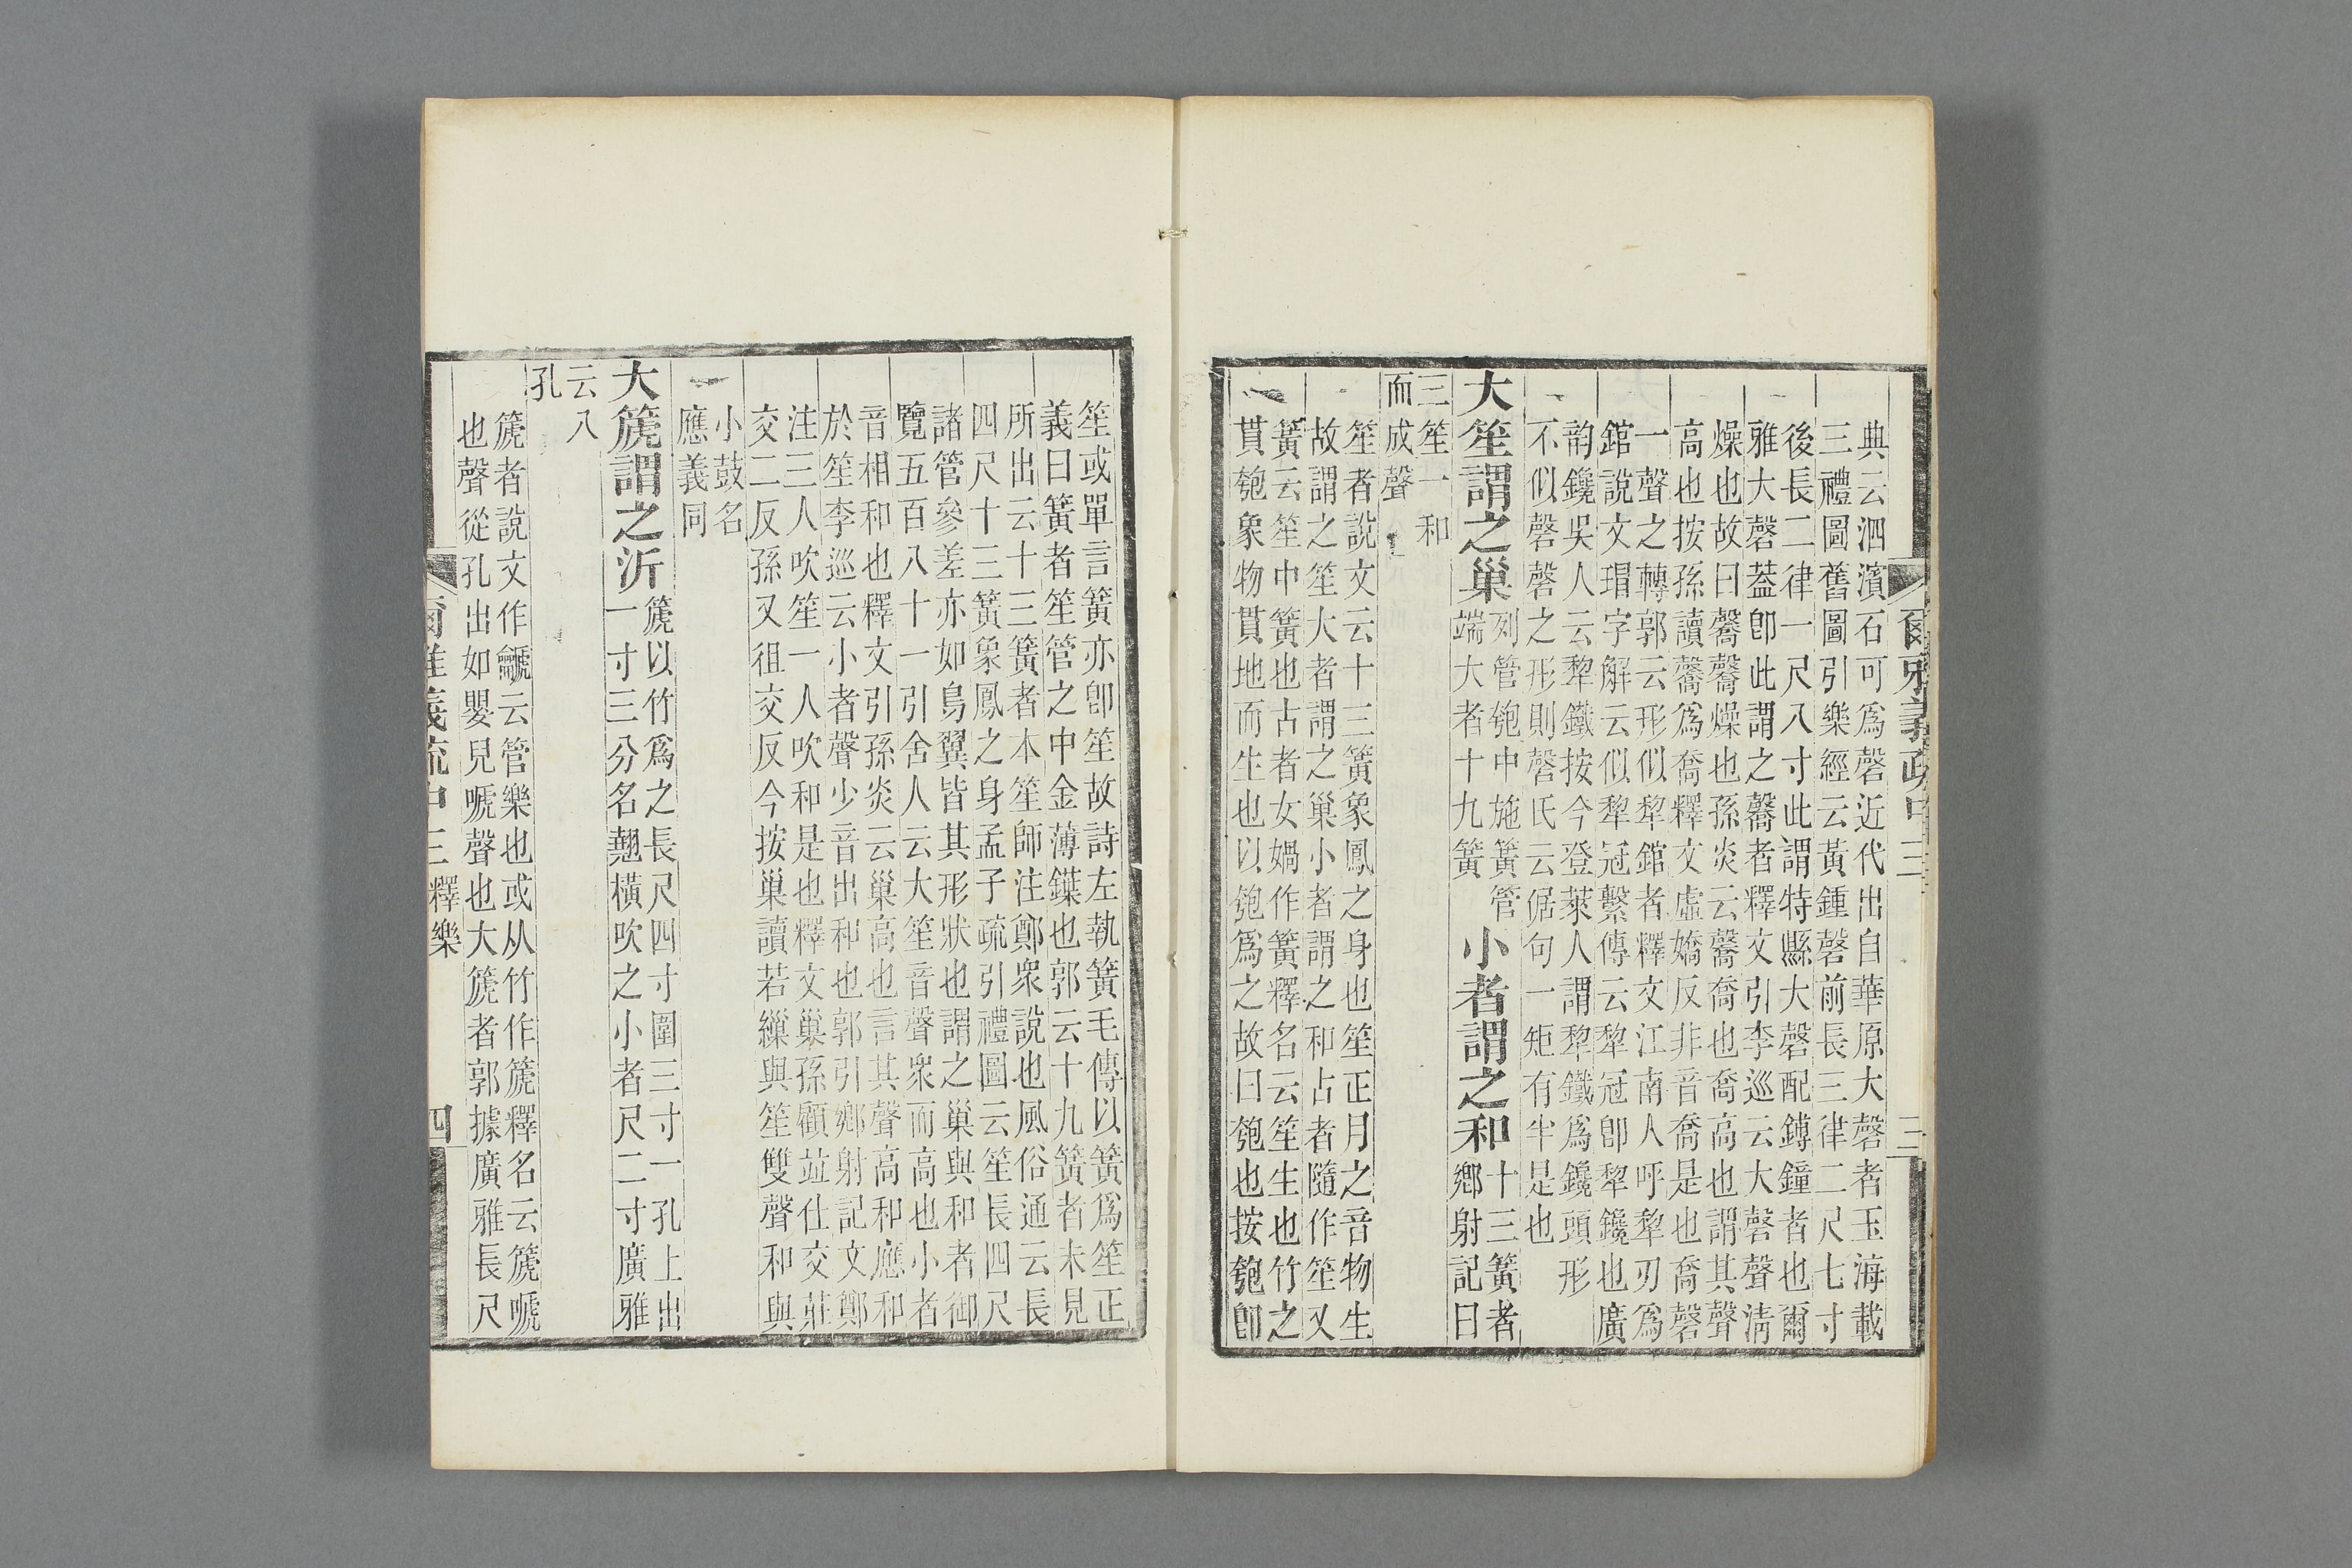 爾雅義疏中三
三
典云泗濱石可爲磬近代出自華原大磬者玉海載
三禮圖舊圖引樂經云黃鍾磬前長三律二尺七寸
後長二律一尺八寸此謂特縣大磬配鎛鐘者也爾
雅大磬葢卽此謂之毊者釋文引李巡云大磬聲淸
燥也故曰毊毊燥也孫炎云毊喬也喬高也謂其聲
高也按孫讀毊爲喬釋文虛嬌反非音喬是也喬磬
一聲之轉郭云形似犂錧者釋文江南人呼犂刃爲
錧說文瑁字解云似犂冠繫傳云犂冠卽犂鑱也廣
韵鑱吳人云犂鐵按今登萊人謂犂鐵爲鑱頭形
不似磬磬之形則磬氏云倨句一矩有半是也
大笙謂之巢
列管匏中施簧管
端大者十九簧
小者謂之和
十三簧者
鄕射記曰
三笙一和
而成聲
笙者說文云十三簧象鳳之身也笙正月之音物生
故謂之笙大者謂之巢小者謂之和占者隨作笙又
簧云笙中簧也古者女媧作簧釋名云笙生也竹之
貫匏象物貫地而生也以匏爲之故曰匏也按匏卽
笙或單言簧亦卽笙故詩左執簧毛傳以簧爲笙正
義曰簧者笙管之中金薄鍱也郭云十九簧者未見
所出云十三簧者本笙師注鄭衆說也風俗通云長
四尺十三簧象鳳之身孟子疏引禮圖云笙長四尺
諸管參差亦如鳥翼皆其形狀也謂之巢與和者御
覽五百八十一引舍人云大笙音聲衆而高也小者
音相和也釋文引孫炎云巢高也言其聲高和應和
於笙李巡云小者聲少音出和也郭引鄕射記文鄭
注三人吹笙一人吹和是也釋文巢孫顧竝仕交莊
交二反孫又徂交反今按巢讀若繅與笙雙聲和與
小鼓名
應義同
大篪謂之沂
篪以竹爲之長尺四寸圍三寸一孔上出
一寸三分名翹橫吹之小者尺二寸廣雅
云八
孔
篪者說文作䶵云管樂也或从竹作篪釋名云篪嗁
也聲從孔出如嬰兒嗁聲也大篪者郭據廣雅長尺
爾雅義疏中三 釋樂
四